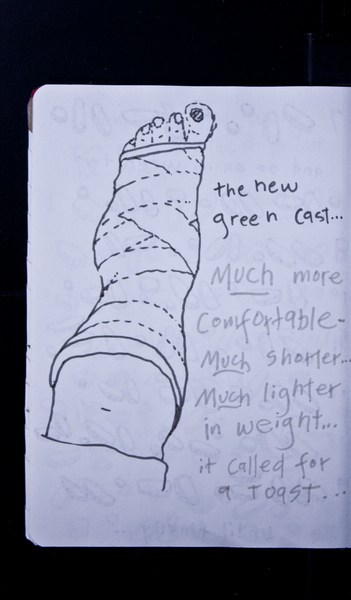 the new
green cast...
Much more
comfortable-
Much shorter...
Much lighter
in weight...
it called for
a toast...